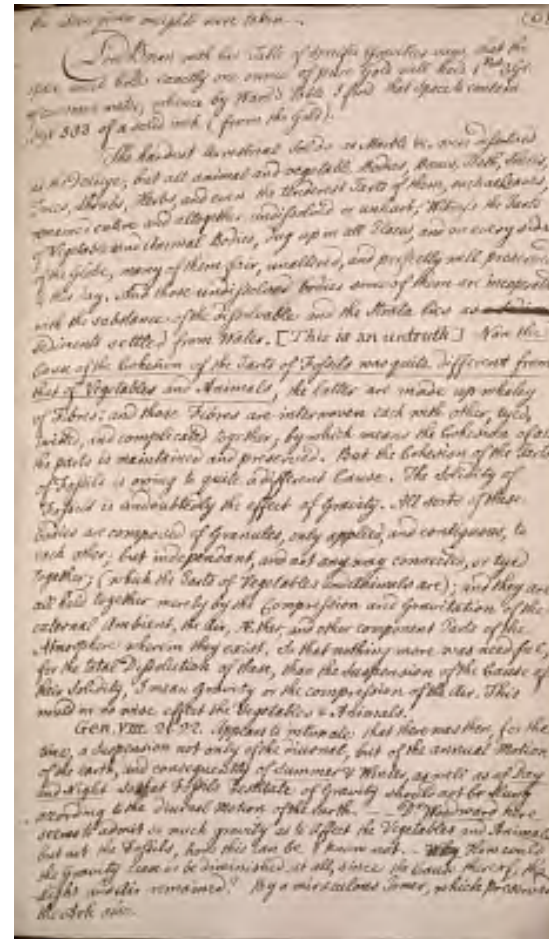 the above given weights were taken.
Lord Bacon with his Table of Specific Gravities says, that the
space which holds exactly one ounce of pure Gold will hold
of common water, whence by Ward's Table I find that Space to contain
333 of a solid inch (from the Gold).
The hardest terrestrial Solids as Marble &c. were dissolved
in the Deluge, but all animal and vegetable Bodies, Bones, Teeth, Shells,
Trees, Shrubs, Herbs, and even the tenderest Parts of them, such as Leaves,
remained entire and altogether undissolved or unhurt; Witness the Parts
of Vegetable and Animal Bodies, dug up in all Places, and on every side
of the Globe, many of them fair, unaltered, and perfectly well preserved
to this day. And those undissolved bodies some of them are incorporated
with the substance of the dissolvable and the Strata lies as
Sediments settled from Water. [This is an untruth] Now the
Cause of the Cohesion of the Parts of Fossils was quite different from
that of Vegetables and Animals, the latter are made up wholey
of Fibres: and those Fibres are interwoven each with other, tyed,
twisted, and complicated together; by which means the Cohesion of all
the parts is maintained and preserved. But the Cohesion of the Parts
of Fossils is owing to quite a different Cause. The Solidity of
Fossils is undoubtedly the effect of Gravity. All sorts of these
Bodies are composed of Granules, only applied, and contiguous, to
each other; but independant, and not any way connected, or tyed
together; (which the Parts of Vegetables and Animals are); and they are
all held together merely by the Compression and Gravitation of the
external Ambient, the Air, Æther, and other component Parts of the
Atmosphere wherein they exist. So that nothing more was needful,
for the total Dissolution of these, than the Suspension of the Cause of
their Solidity, I mean Gravity or the compression of the Air. This
would in no wise effect the Vegetables & Animals.
Gen. VIII. 21. 22. Appears to intimate that there was then, for the
time, a suspension not only of the diurnal, but of the annual Motion
of the Earth, and consequently of Summer & Winter, as well as of Day
and Night so that Fossils destitute of Gravity should not be
according to the diurnal Motion of the Earth. Dr. Woodward here
seems to admit so much gravity as to affect the Vegetables and Animals
but not the Fossils, how this can be I know not. How could
the Gravity cease or be diminished at all, since the Cause thereof, the
Light and Air remained? By a miraculous Power, which preserved
the Ark also.